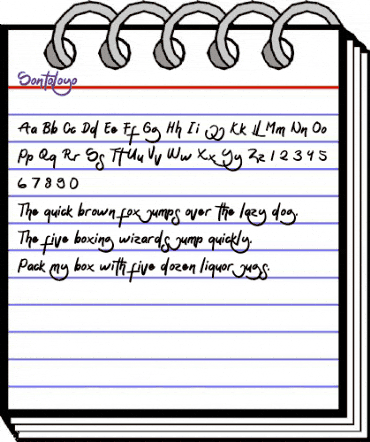 Santoloyo
Aa Bb Cc Dd Ee Ff Gg Hh Ii Jj Kk Ll Mm Nn Oo
Pp Qq Rr Ss Tt Uu Vv Ww Xx Yy Zz 1 2 3 4 5
6 7 8 9 0
The quick brown fox jumps over the lazy dog.
The five boxing wizards jump quickly.
Pack my box with five dozen liquor jugs.